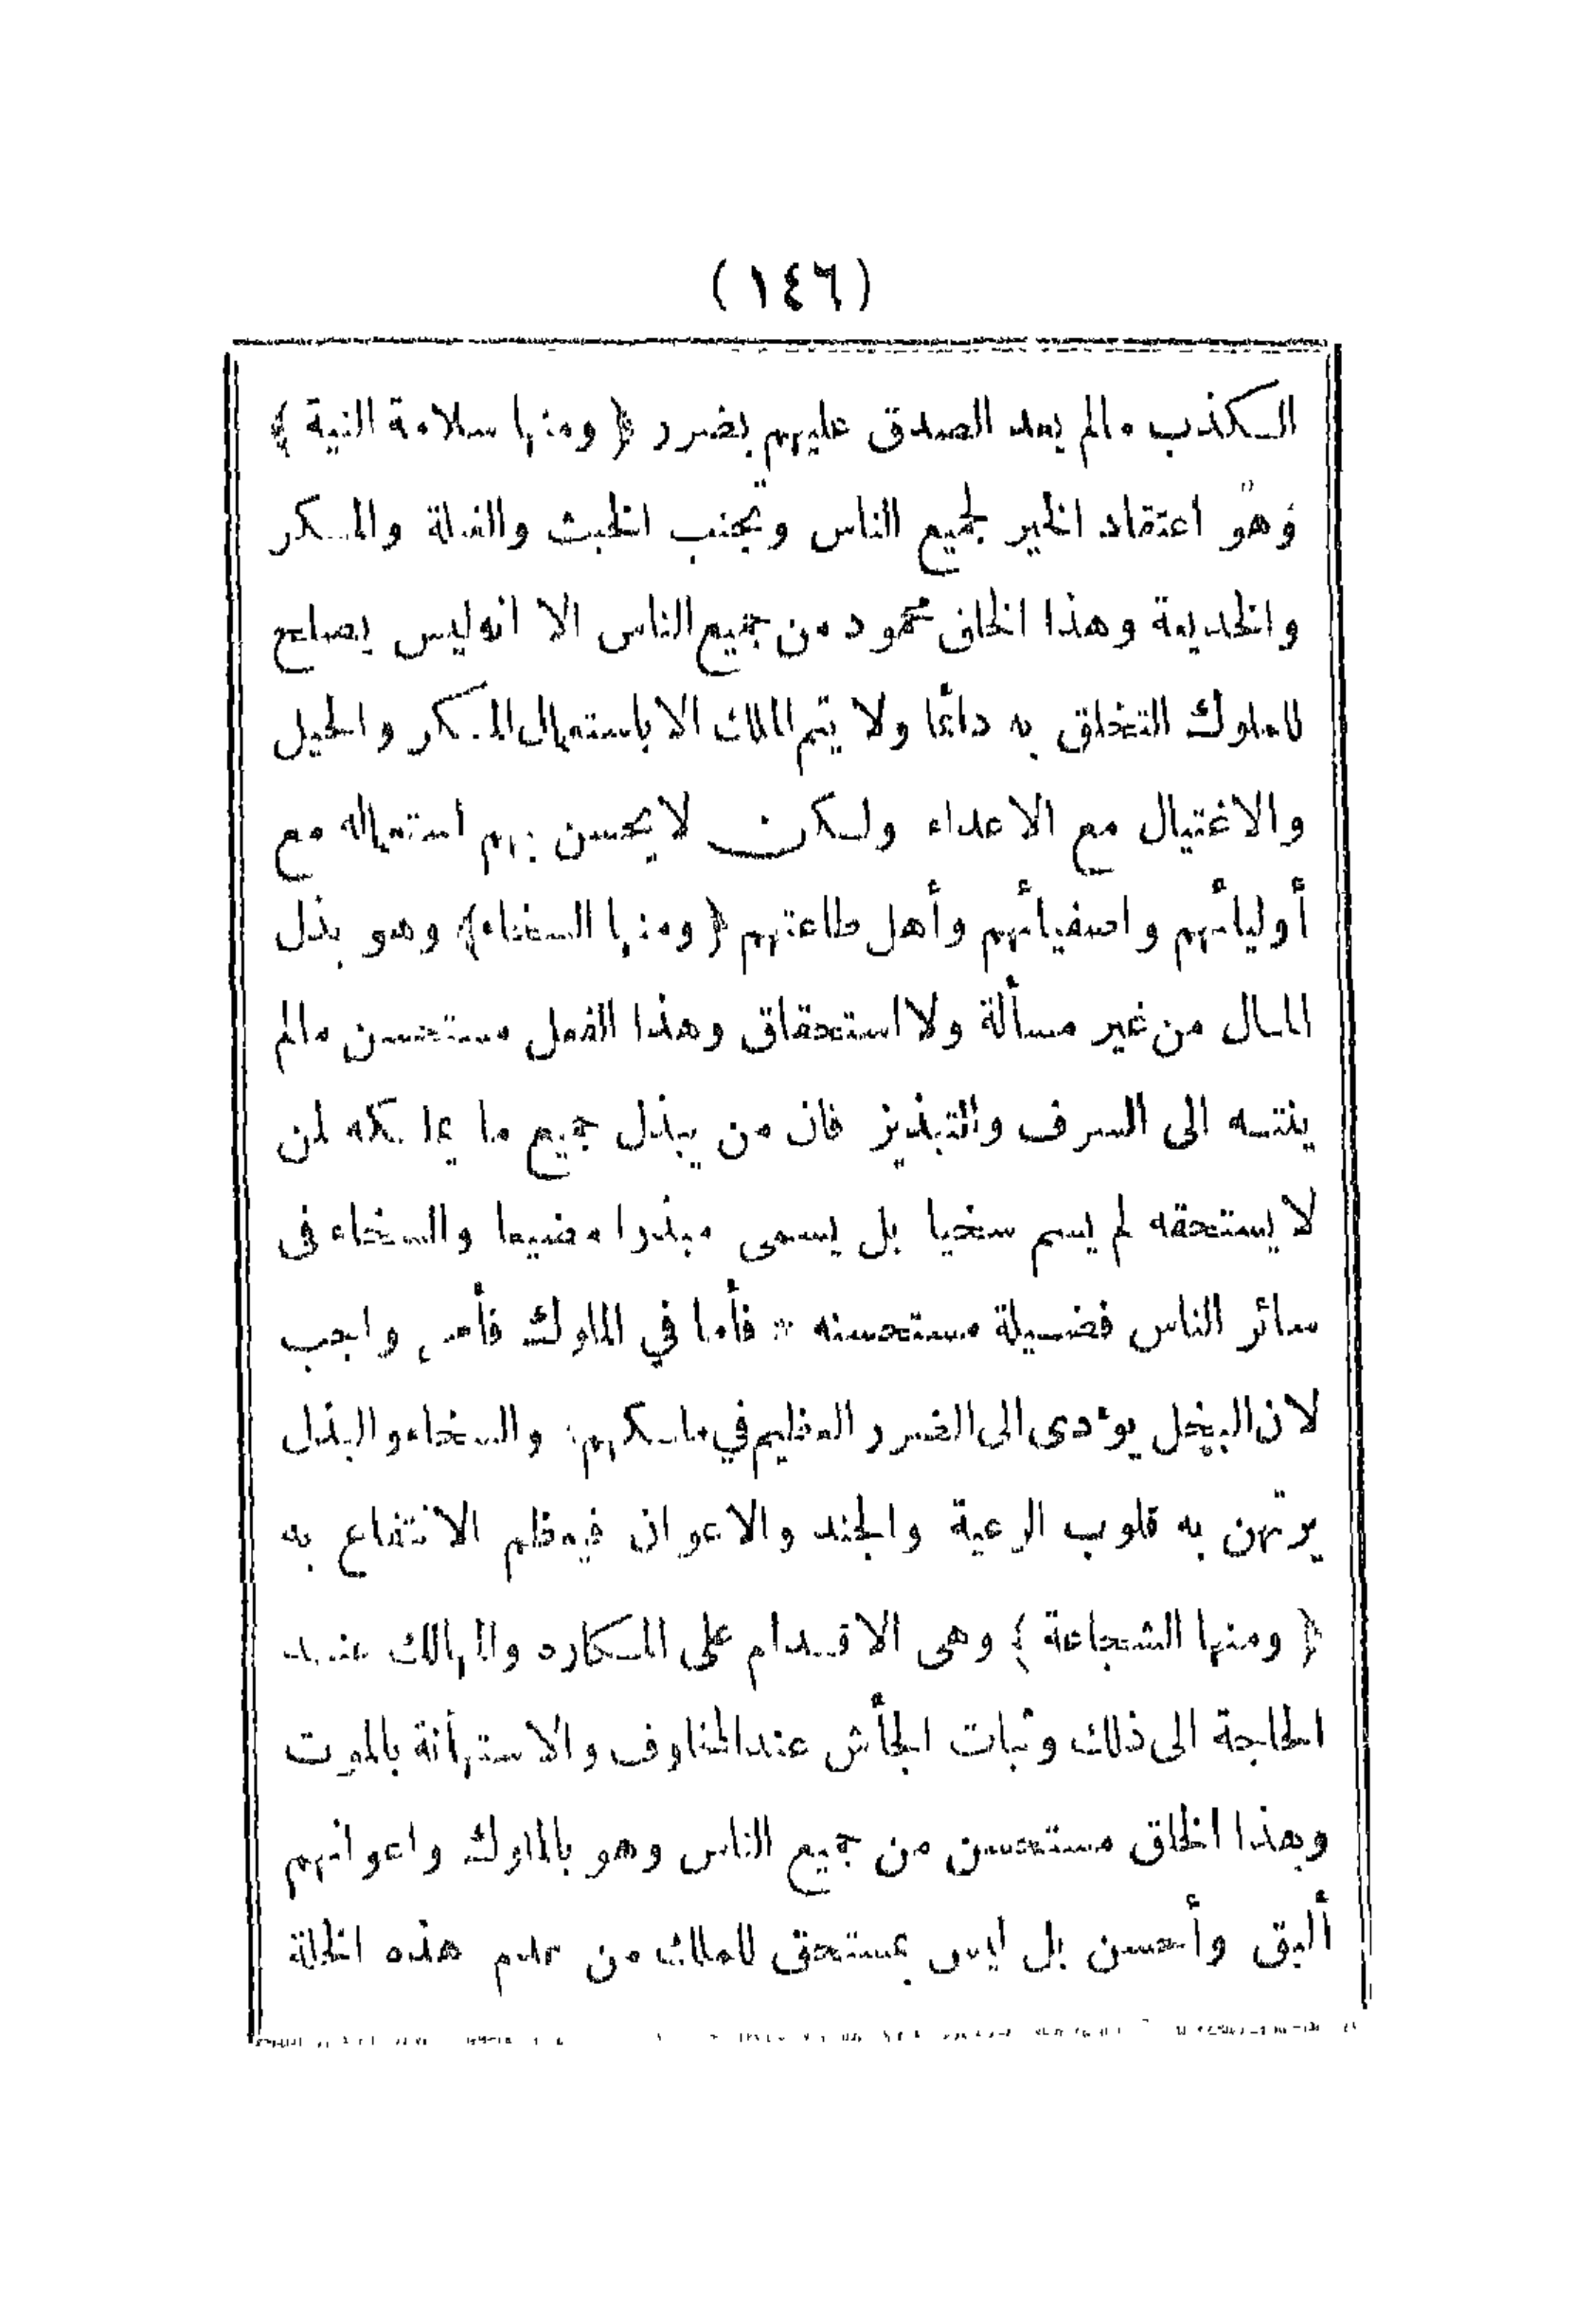 (١٤٦)
الكذب مالم يعد الصدق عليهم بضرر ﴿ ومنها سلامة النية ﴾
وهو اعتقاد الخير لجميع الناس وتجنب الخبث والغيلة والمكر
والخديعة وهذا الخلق محمود من جميع الناس الا انه ليس يصلح
للملوك التخلق به دائما ولا يتم الملك الا باستعمال المكر والحيل
والاغتيال مع الاعداء ولكن لا يحسن بهم استعماله مع
أوليائهم واصفيائهم وأهل طاعتهم ﴿ ومنها السخاء ﴾ وهو بذل
المال من غير مسألة ولا استحقاق وهذا الفعل مستحسن مالم
ينته الى السرف والتبذير فان من يبذل جميع ما يملكه لمن
لا يستحقه لم يسم سخيا بل يسمى مبذرا مضيعا والسخاء فى
سائر الناس فضيلة مستحسنه * فأما في الملوك فأمر واجب
لان البخل يؤدى الى الضرر العظيم في ملكهم والسخاء والبذل
يرتهن به قلوب الرعية والجند والاعوان فيعظم الانتفاع به
﴿ ومنها الشجاعة ﴾ وهى الاقدام على المكاره والمهالك عند
الحاجة الى ذلك وثبات الجأش عند المخاوف والاستهانة بالموت
وهذا الخلق مستحسن من جميع الناس وهو بالملوك واعوانهم
أليق وأحسن بل ليس بمستحق للملك من عدم هذه الخلة